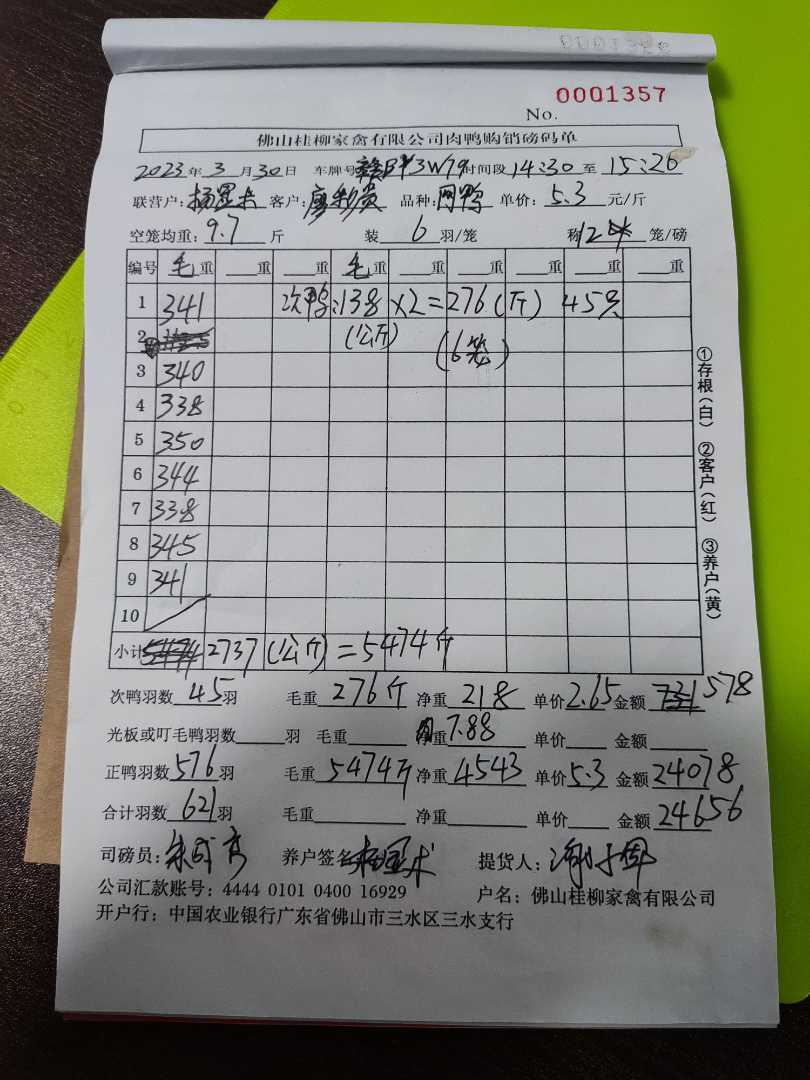 0001357
No.
佛山桂柳家禽有限公司肉鸭购销磅码单
2023年3月30日 车牌号 赣B 3W79 时间段 14:30 至 15:26
联营户: 客户: 廖 贵 品种: 鸭 单价: 5.3 元/斤
空笼均重: 9.7 斤 装 6 羽/笼 称 12 笼/磅
编号 毛重 重 重 毛重 重 重 重 重 重
1 341 次鸭:138×2=276(斤) 45只
2 (公斤) (6笼)
3 340
4 338
5 350
6 344
7 338
8 345
9 341
10
小计 2737(公斤)=5474斤
次鸭羽数 45羽 毛重 276斤 净重 218 单价 2.65 金额 578
光板或叮毛鸭羽数 羽 毛重 净重 7.88 单价 金额
正鸭羽数 576羽 毛重 5474斤 净重 4543 单价 5.3 金额 24078
合计羽数 621羽 毛重 净重 单价 金额 24656
司磅员: 养户签名 提货人:
公司汇款账号: 4444 0101 0400 16929 户名: 佛山桂柳家禽有限公司
开户行: 中国农业银行广东省佛山市三水区三水支行
①存根(白) ②客户(红) ③养户(黄)